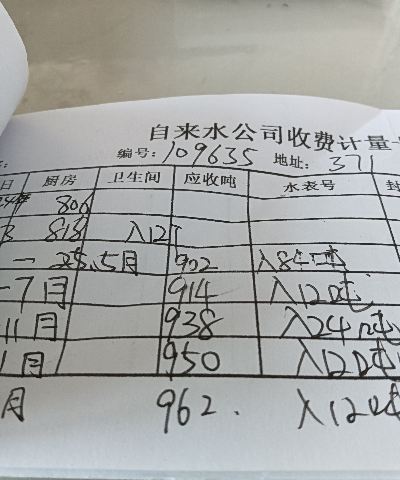 自来水公司收费计量
编号: 109635 地址: 371
日 厨房 卫生间 应收吨 水表号 封
806
813 入12
5月 902 入84吨
-7月 914 入12吨
11月 938 入24吨
1月 950 入12吨
月 962. 入12吨